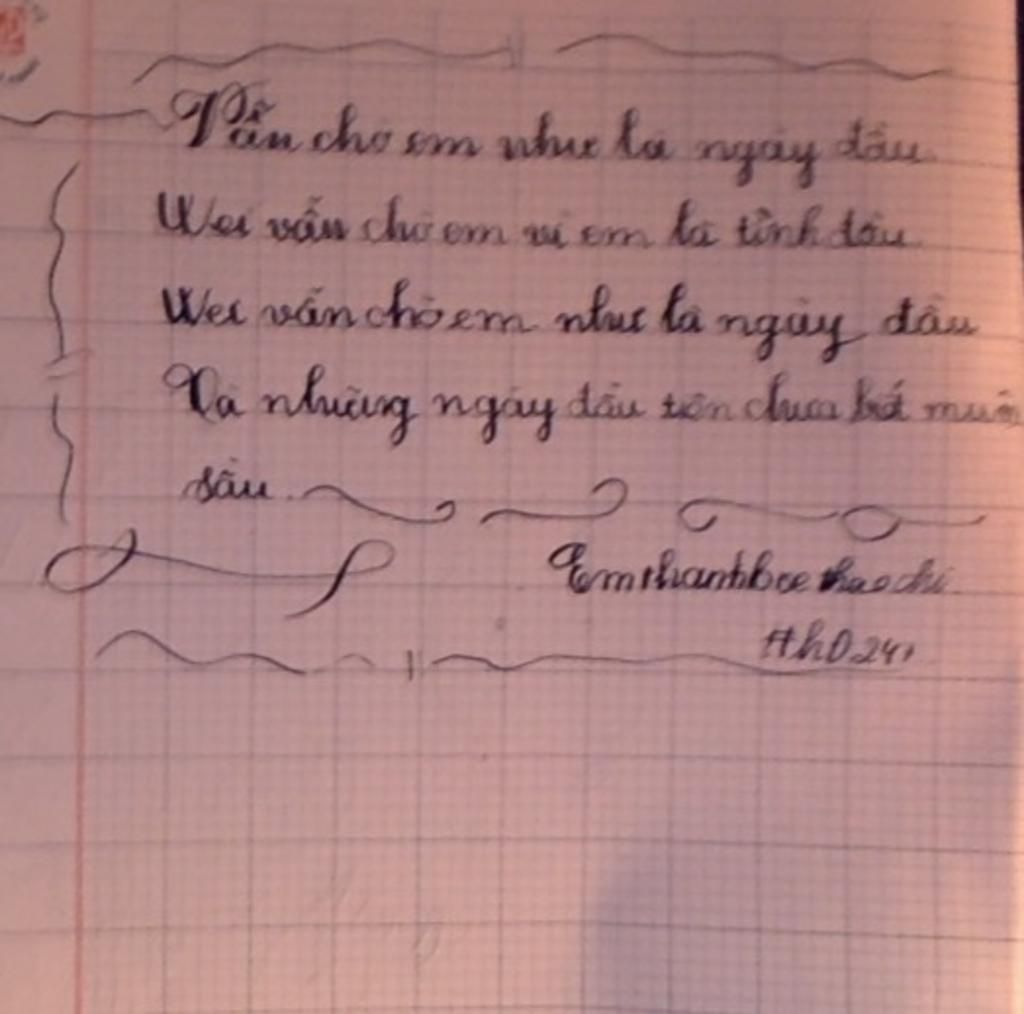 Vẫn chờ em như là ngày đầu
Wei vẫn chờ em vì em là tình đầu
Wei vẫn chờ em như là ngày đầu
Và những ngày đầu tiên chưa biết muộn
sầu
#h0.24